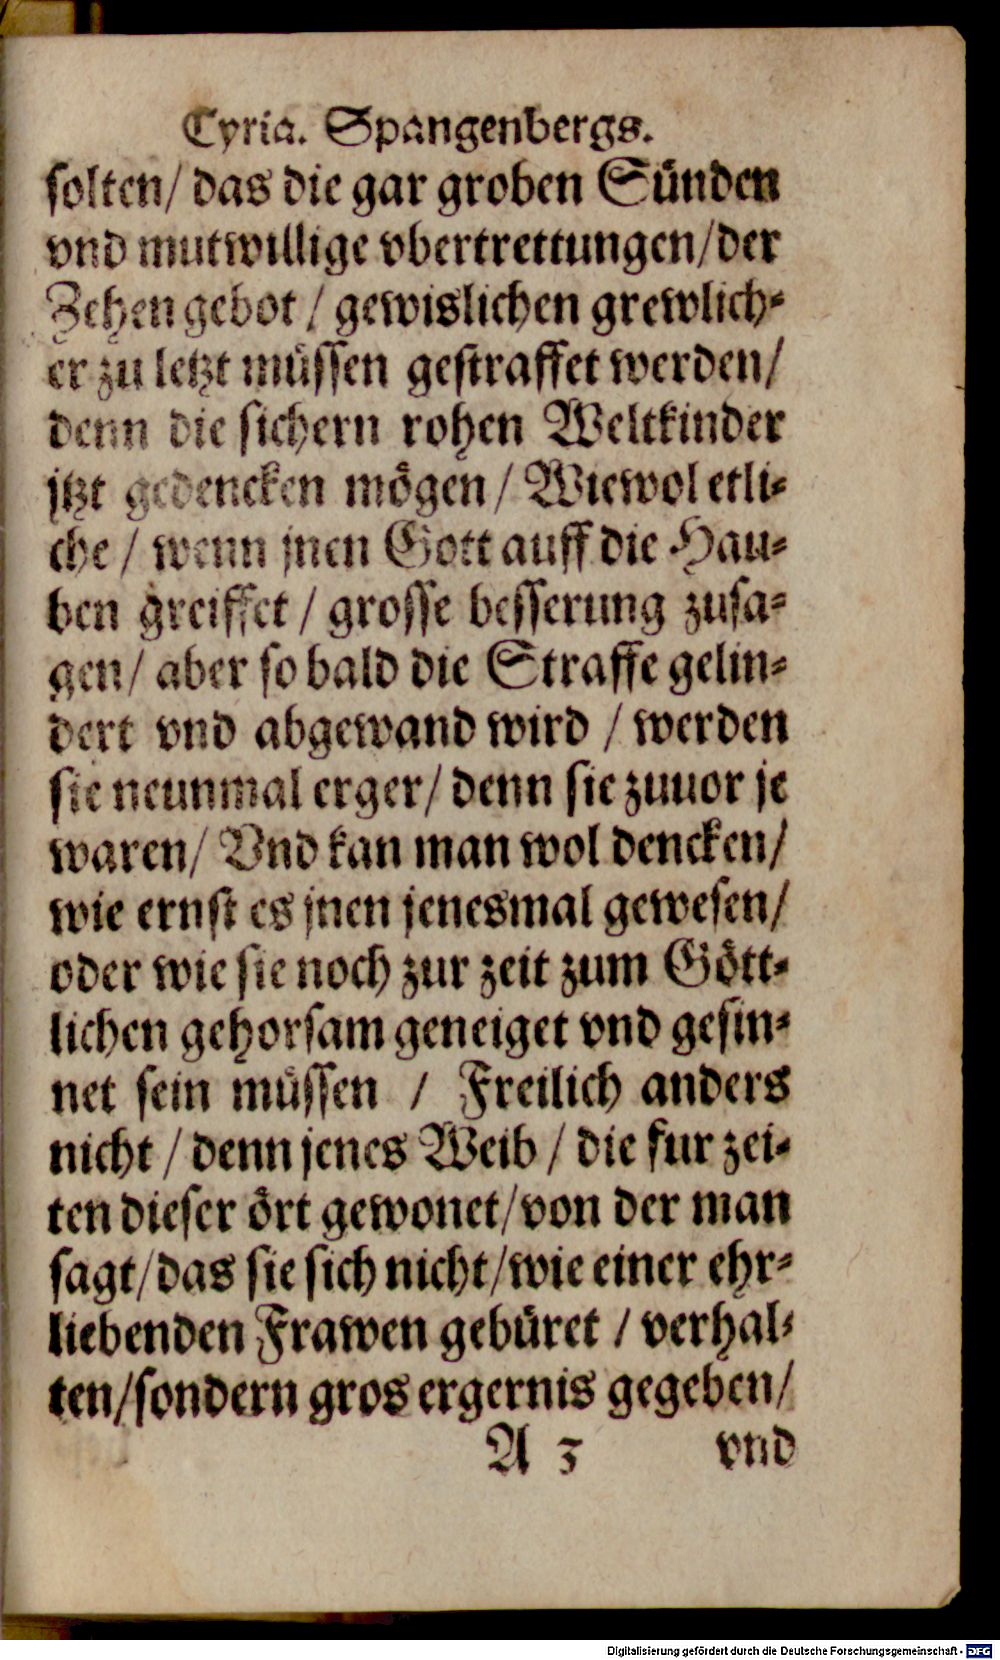 Cyria. Spangenbergs.
solten/ das die gar groben Sünden
vnd mutwillige vbertrettungen/der
Zehen gebot / gewislichen grewlich⸗
er zu letzt müssen gestraffet werden/
denn die sichern rohen Weltkinder
jtzt gedencken mögen / Wiewol etli⸗
che / wenn jnen Gott auff die Hau⸗
ben greiffet / grosse besserung zusa⸗
gen/ aber so bald die Straffe gelin⸗
dert vnd abgewand wird / werden
sie neunmal erger/ denn sie zuuor je
waren/ Vnd kan man wol dencken/
wie ernst es jnen jenesmal gewesen/
oder wie sie noch zur zeit zum Gött⸗
lichen gehorsam geneiget vnd gesin⸗
net sein müssen / Freilich anders
nicht / denn jenes Weib / die fur zei⸗
ten dieser ört gewonet/von der man
sagt/das sie sich nicht/wie einer ehr⸗
liebenden Frawen gebüret / verhal⸗
ten/sondern gros ergernis gegeben/
A 3 vnd
Digitalisierung gefördert durch die Deutsche Forschungsgemeinschaft - DFG